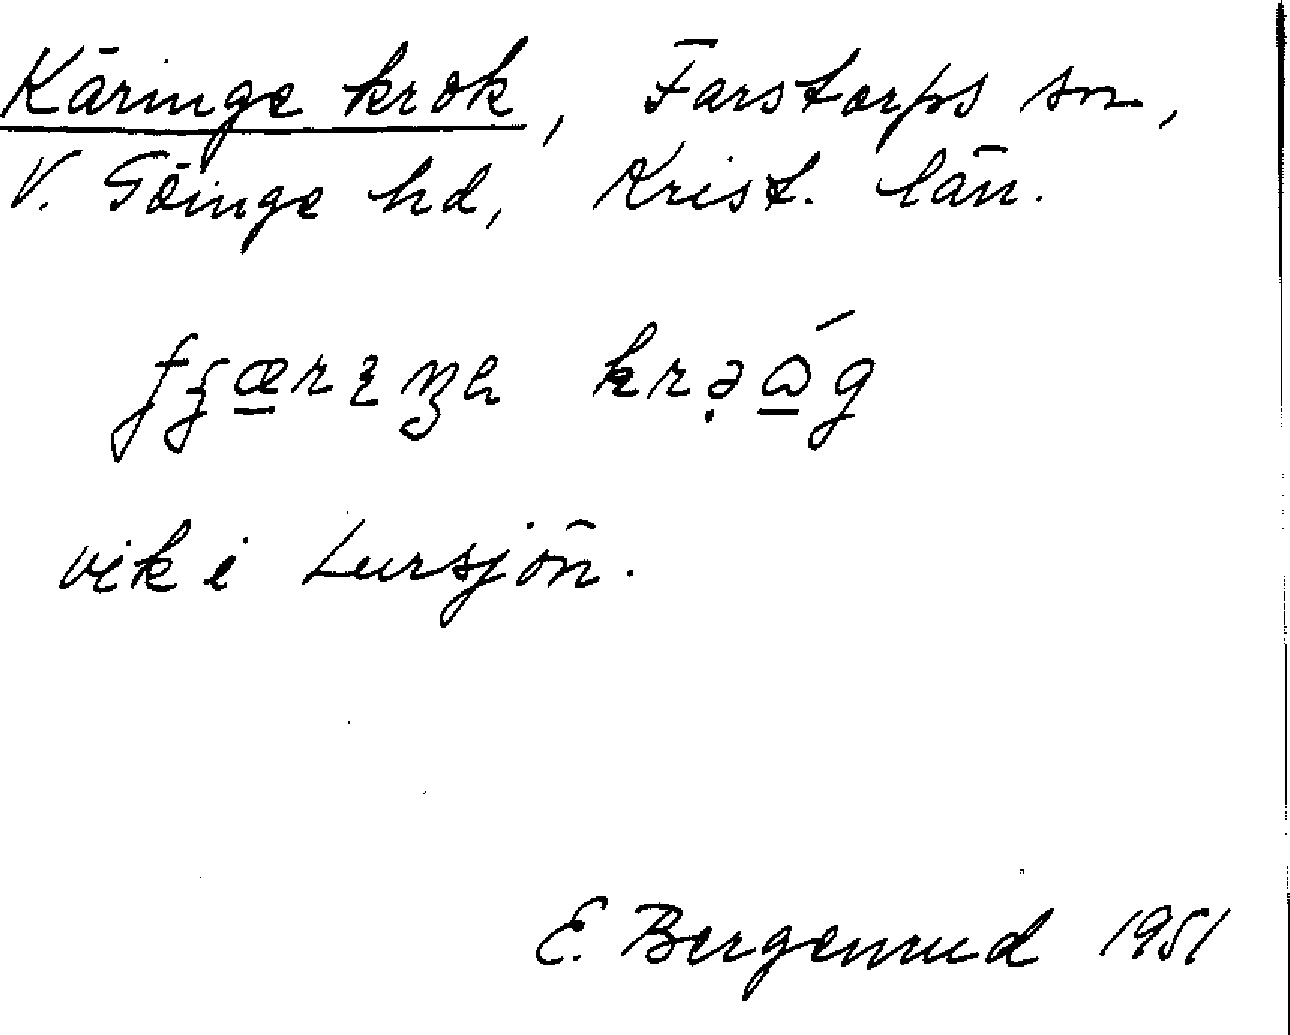 Käringe krok, Farstorps sn,
V. Göinge hd, Krist. län.
vik i Lursjön.
E. Bergenrud 1951